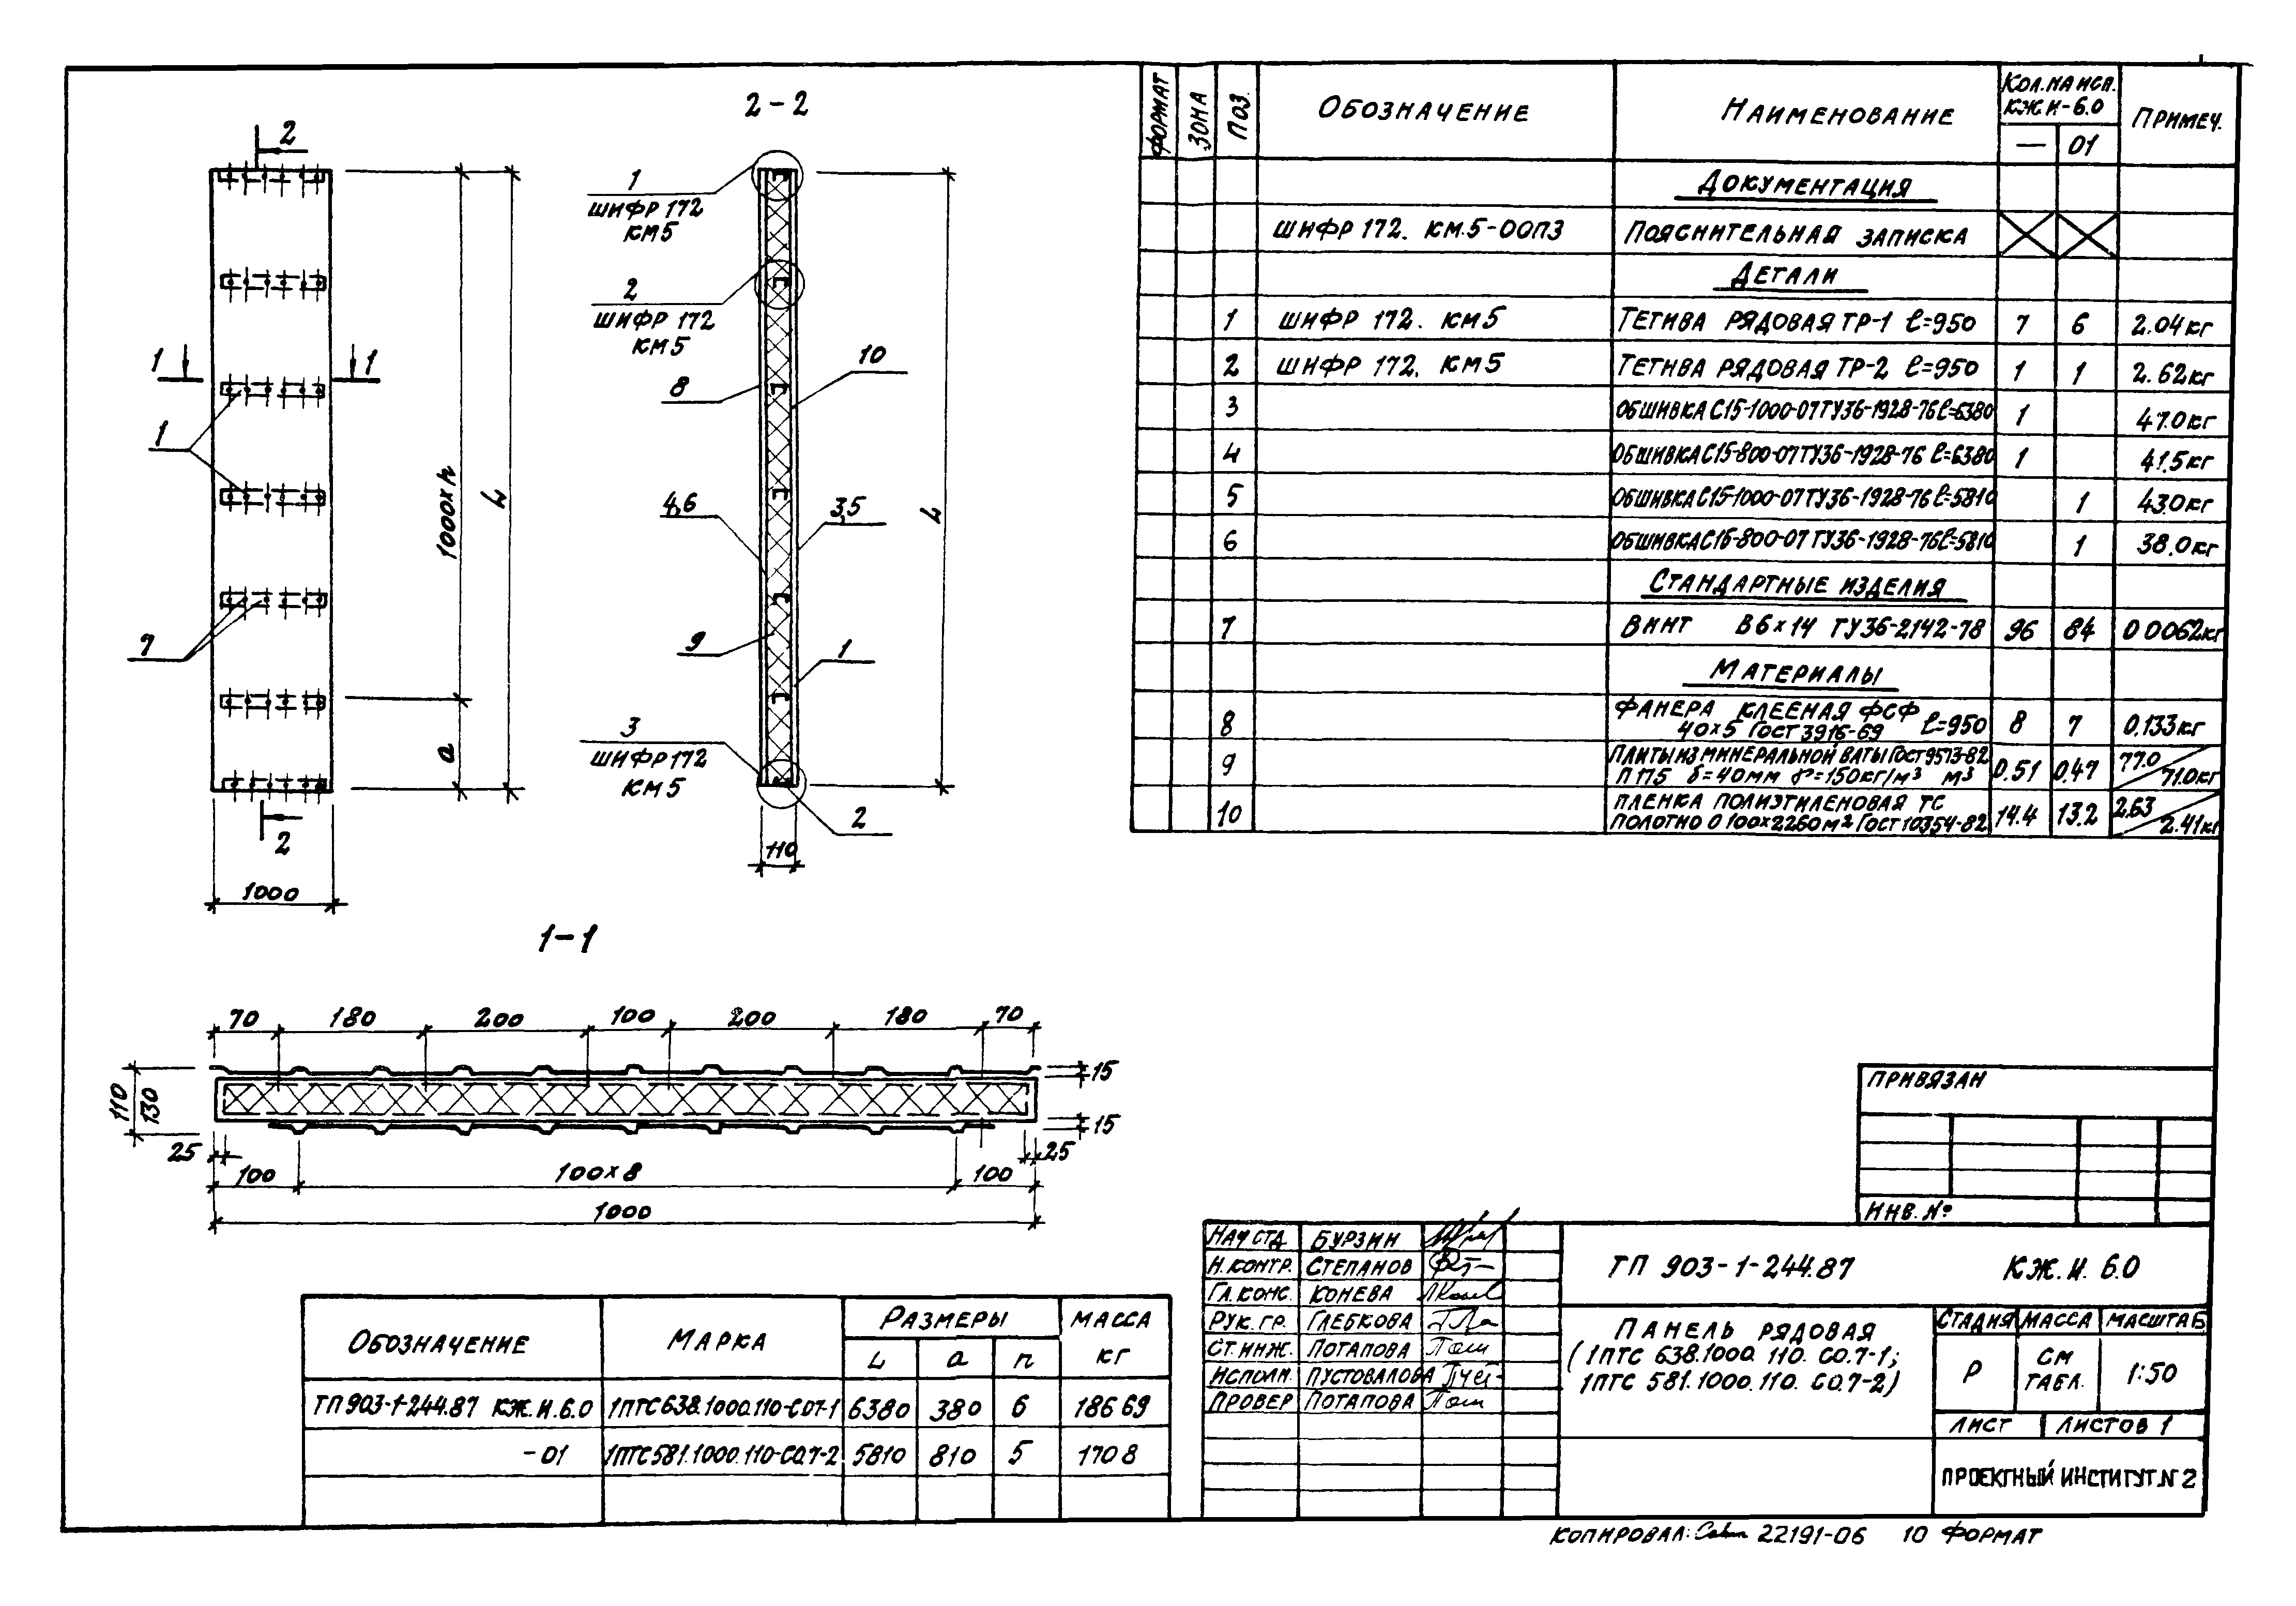 2
2
1
1
1
7
1000×n
L
a
2
1000
2-2
1
ШИФР 172
КМ5
2
ШИФР 172
КМ5
8
10
4,6
3,5
9
1
L
3
ШИФР 172
КМ5
2
110
1-1
70 180 200 100 200 180 70
110
130
15
15
25
25
100 100×8 100
1000
ФОРМАТ ЗОНА ПОЗ. ОБОЗНАЧЕНИЕ НАИМЕНОВАНИЕ КОЛ.НА ИСП. КЖ.И-6.0 ПРИМЕЧ.
— 01
ДОКУМЕНТАЦИЯ
ШИФР 172. КМ.5-00ПЗ ПОЯСНИТЕЛЬНАЯ ЗАПИСКА
ДЕТАЛИ
1 ШИФР 172. КМ5 ТЕТИВА РЯДОВАЯ ТР-1 ℓ=950 7 6 2.04кг
2 ШИФР 172. КМ5 ТЕТИВА РЯДОВАЯ ТР-2 ℓ=950 1 1 2.62кг
3 ОБШИВКА С15-1000-07 ТУ36-1928-76 ℓ=6380 1 47.0кг
4 ОБШИВКА С15-800-07 ТУ36-1928-76 ℓ=6380 1 41.5кг
5 ОБШИВКА С15-1000-07 ТУ36-1928-76 ℓ=5810 1 43.0кг
6 ОБШИВКА С15-800-07 ТУ36-1928-76 ℓ=5810 1 38.0кг
СТАНДАРТНЫЕ ИЗДЕЛИЯ
7 ВИНТ В6×14 ТУ36-2142-78 96 84 0.0062кг
МАТЕРИАЛЫ
8 ФАНЕРА КЛЕЕНАЯ ФСФ 40×5 ГОСТ 3916-69 ℓ=950 8 7 0.133кг
9 ПЛИТЫ ИЗ МИНЕРАЛЬНОЙ ВАТЫ ГОСТ 9573-82
П175 δ=40мм γ=150кг/м³ м³ 0.51 0.47 77.0/71.0кг
10 ПЛЕНКА ПОЛИЭТИЛЕНОВАЯ ТС
ПОЛОТНО 0.100×2260 м² ГОСТ 10354-82 14.4 13.2 2.63/2.41кг
ПРИВЯЗАН
ИНВ. №
ОБОЗНАЧЕНИЕ МАРКА РАЗМЕРЫ МАССА КГ
L a n
ТП 903-1-244.87 КЖ.И.6.0 1ПТС638.1000.110-С0.7-1 6380 380 6 186.69
-01 1ПТС581.1000.110-С0.7-2 5810 810 5 170.8
НАЧ.ОТД БУРЗИН
Н.КОНТР. СТЕПАНОВ
ГЛ.КОНС. КОНЕВА
РУК.ГР. ГЛЕБКОВА
СТ.ИНЖ. ПОТАПОВА
ИСПОЛН. ПУСТОВАЛОВА
ПРОВЕР ПОТАПОВА
ТП 903-1-244.87 КЖ.И. 6.0
ПАНЕЛЬ РЯДОВАЯ
(1ПТС 638.1000. 110. С0.7-1;
1ПТС 581.1000.110. С0.7-2)
СТАДИЯ МАССА МАСШТАБ
Р СМ ТАБЛ. 1:50
ЛИСТ ЛИСТОВ 1
ПРОЕКТНЫЙ ИНСТИТУТ N2
КОПИРОВАЛ: 22191-06 10 ФОРМАТ